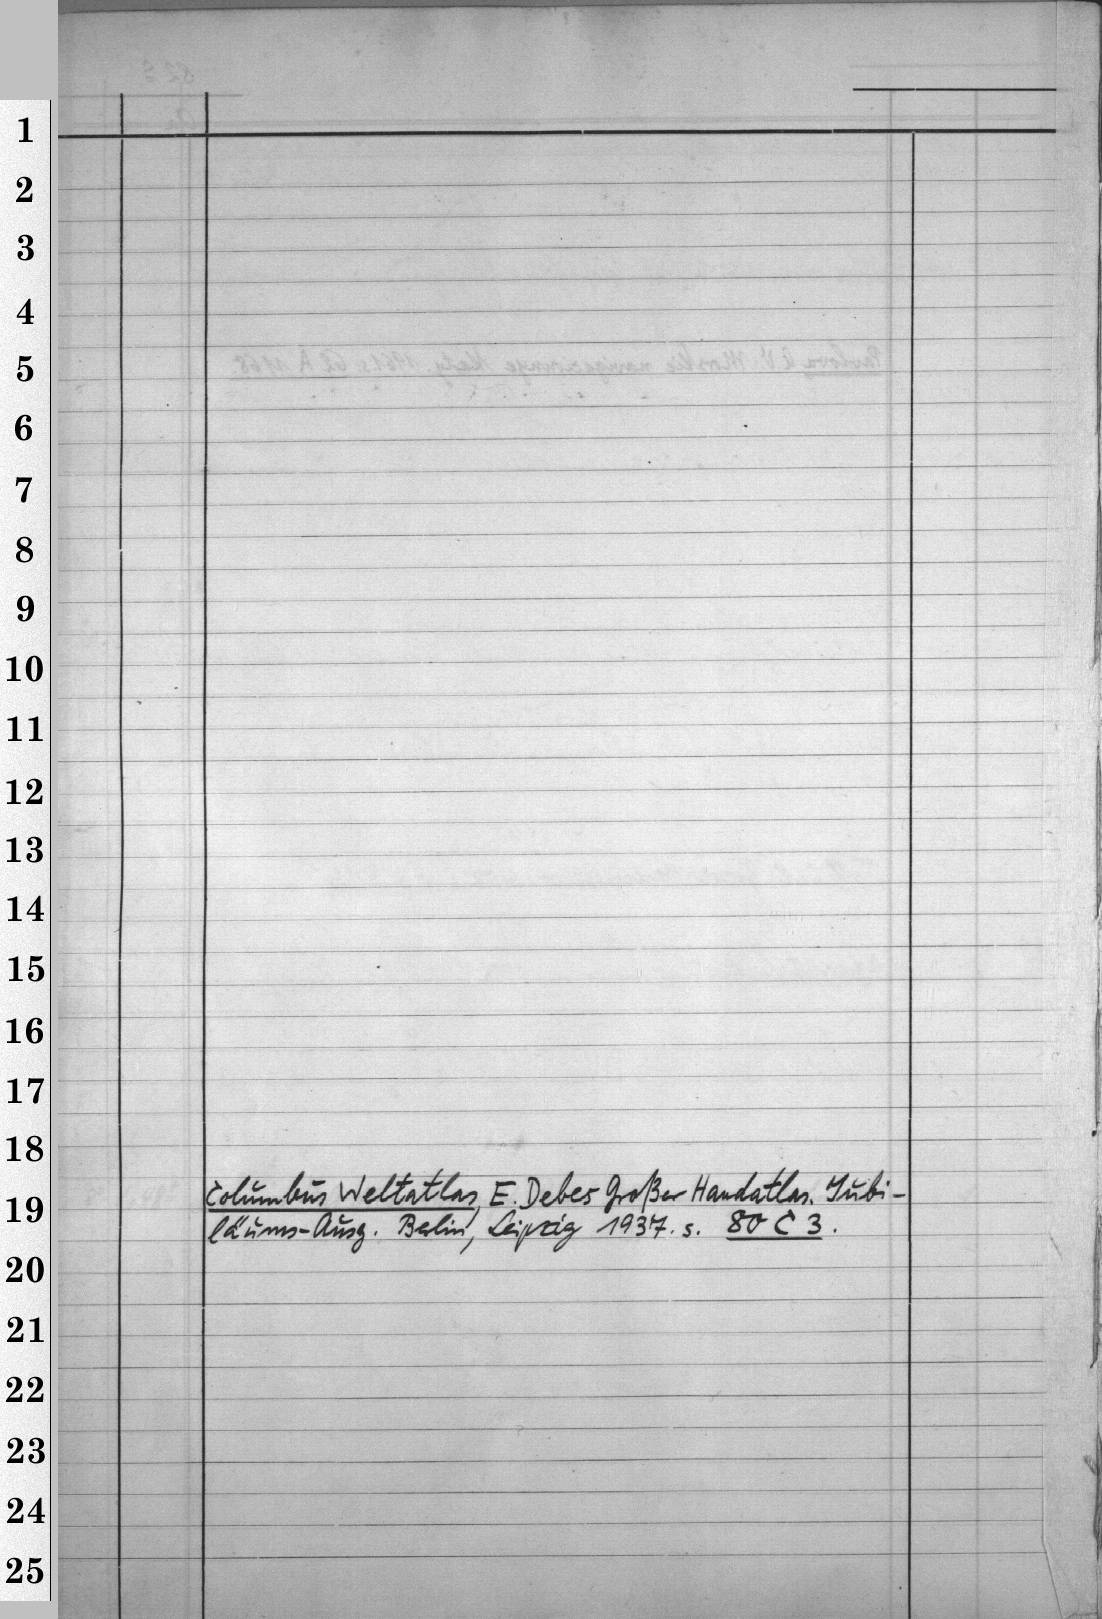 1
2
3
4
5
6
7
8
9
10
11
12
13
14
15
16
17
18
Columbus Weltatlas, E. Debes Großer Handatlas. Jubi-
19
läums-Ausg. Berlin, Leipzig 1937. s. 80 C 3.
20
21
22
23
24
25